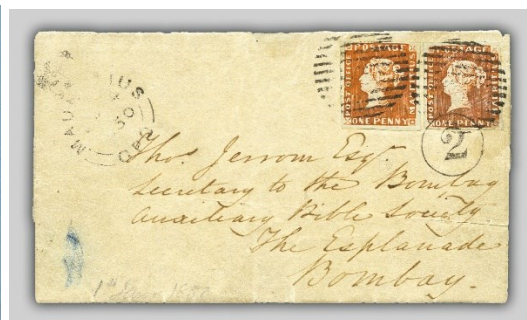 POSTAGE POSTAGE
ONE PENNY ONE PENNY
2
Thos. Jerrom Esqr.
Secretary to the Bombay
Auxiliary Bible Society
The Esplanade
Bombay.